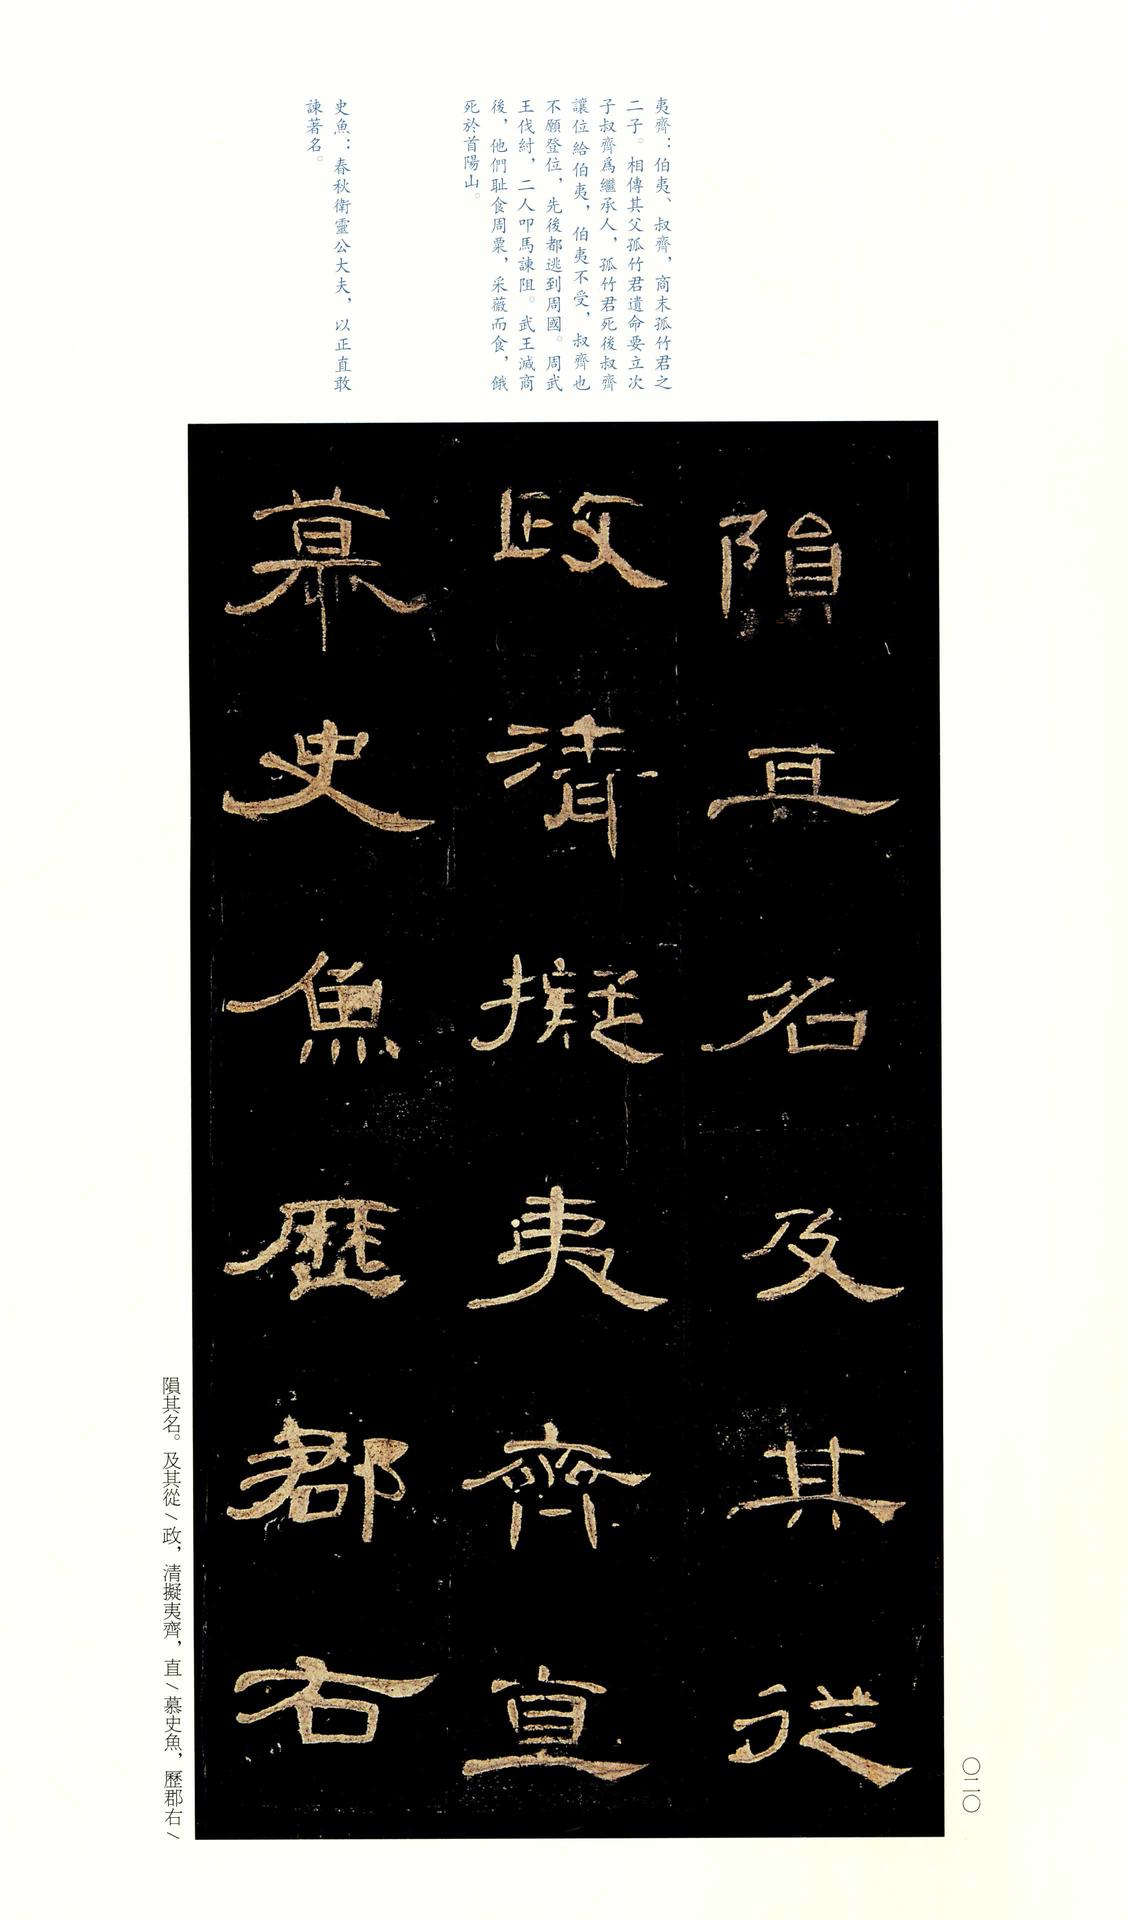 夷齊：伯夷、叔齊，商末孤竹君之
二子。相傳其父孤竹君遺命要立次
子叔齊爲繼承人，孤竹君死後叔齊
讓位給伯夷，伯夷不受，叔齊也
不願登位，先後都逃到周國。周武
王伐紂，二人叩馬諫阻。武王滅商
後，他們耻食周粟，采薇而食，餓
死於首陽山。
史魚：春秋衛靈公大夫，以正直敢
諫著名。
隕其名及其從
政清擬夷齊直
慕史魚歷郡右
隕其名。及其從/政，清擬夷齊，直/慕史魚，歷郡右/
〇二〇